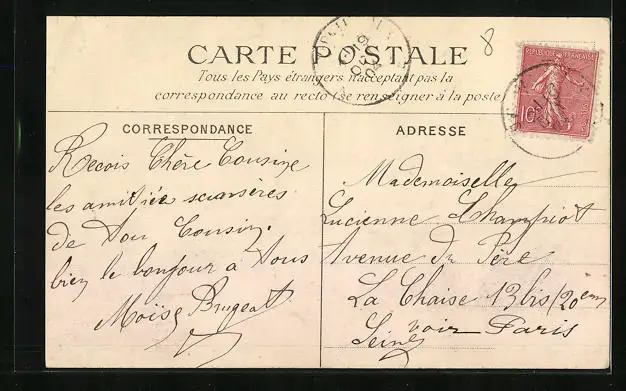 8
CARTE POSTALE
Tous les Pays étrangers n'acceptent pas la
correspondance au recto (se renseigner à la poste)
REPUBLIQUE FRANÇAISE
10
CORRESPONDANCE
ADRESSE
Recois Chère Cousine
les amitiée
de Ton Cousin.
bien le bonjour a Tous
Moïse Brugeat
Mademoiselle
Lucienne Champiot
Avenue du Père
La Chaise 13 bis (20em
Seine voir Paris